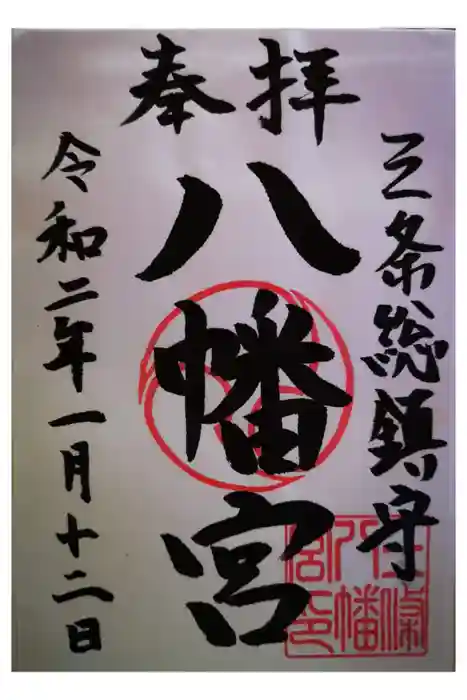 奉拝
三条総鎮守
八幡宮
令和二年一月十二日
三條
八幡
宮印